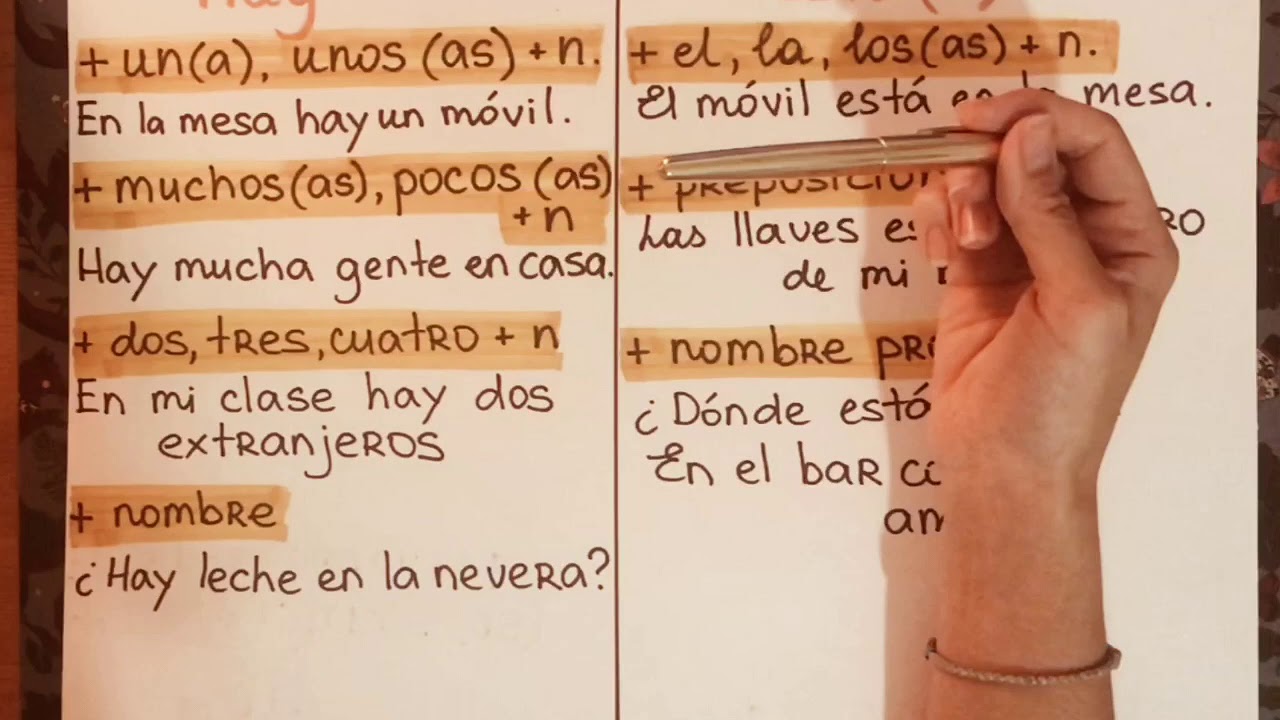 Hay
+ un(a), unos (as) + n.
En la mesa hay un móvil.
+ muchos(as), pocos (as)
+ n
Hay mucha gente en casa.
+ dos, tres, cuatro + n
En mi clase hay dos
extranjeros
+ nombre
¿Hay leche en la nevera?
+ el, la, los(as) + n.
El móvil está en la mesa.
+
Las llaves
de mi
+ nombre
¿Dónde
En el bar